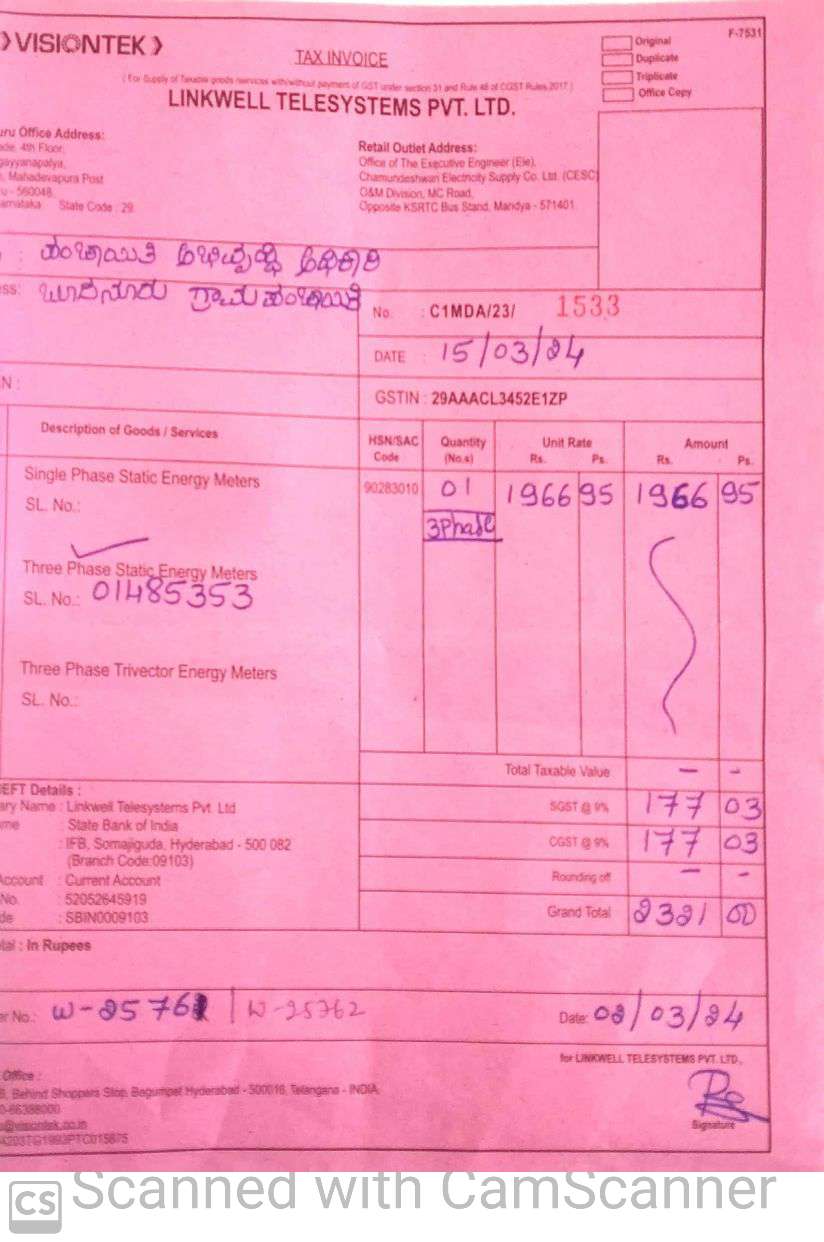 VISIONTEK
F-7531
TAX INVOICE
Original
Duplicate
Triplicate
Office Copy
(For Supply of Taxable goods /services with/without payment of GST under section 31 and Rule 46 of CGST Rules 2017)
LINKWELL TELESYSTEMS PVT. LTD.
uru Office Address:
ade, 4th Floor,
gayyanapalya,
, Mahadevapura Post
u - 560048,
arnataka State Code : 29
Retail Outlet Address:
Office of The Executive Engineer (Ele),
Chamundeshwari Electricity Supply Co. Ltd. (CESC)
O&M Division, MC Road,
Opposite KSRTC Bus Stand, Mandya - 571401
: ಪಂಚಾಯಿತಿ ಅಭಿವೃದ್ಧಿ ಅಧಿಕಾರಿ
ess: ಬೂದನೂರು ಗ್ರಾಮ ಪಂಚಾಯಿತಿ
No. : C1MDA/23/ 1533
DATE : 15/03/24
N :
GSTIN : 29AAACL3452E1ZP
Description of Goods / Services
HSN/SAC Code
Quantity (No.s)
Unit Rate Rs. Ps.
Amount Rs. Ps.
Single Phase Static Energy Meters
SL. No.:
90283010 01 1966 95 1966 95
3Phase
Three Phase Static Energy Meters
SL. No.: 01485353
Three Phase Trivector Energy Meters
SL. No.:
Total Taxable Value — -
SGST @ 9% 177 03
CGST @ 9% 177 03
Rounding off — -
Grand Total 2321 00
EFT Details :
ary Name : Linkwell Telesystems Pvt. Ltd
me : State Bank of India
: IFB, Somajiguda, Hyderabad - 500 082
(Branch Code:09103)
Account : Current Account
No. : 52052645919
de : SBIN0009103
tal : In Rupees
er No.: W-25761 | W-25762
Date: 02/03/24
for LINKWELL TELESYSTEMS PVT. LTD.,
Office :
, Behind Shoppers Stop, Begumpet Hyderabad - 500016, Telangana - INDIA
0-66388000
@visiontek.co.in
4203TG1993PTC015875
Signature
CS Scanned with CamScanner